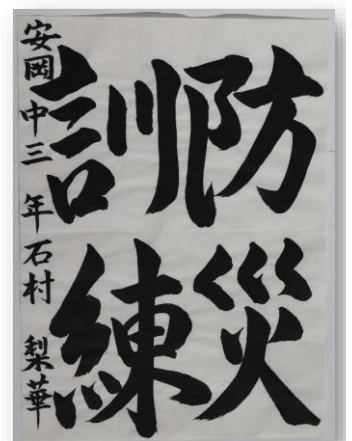 防災
訓練
安岡中三年石村梨華